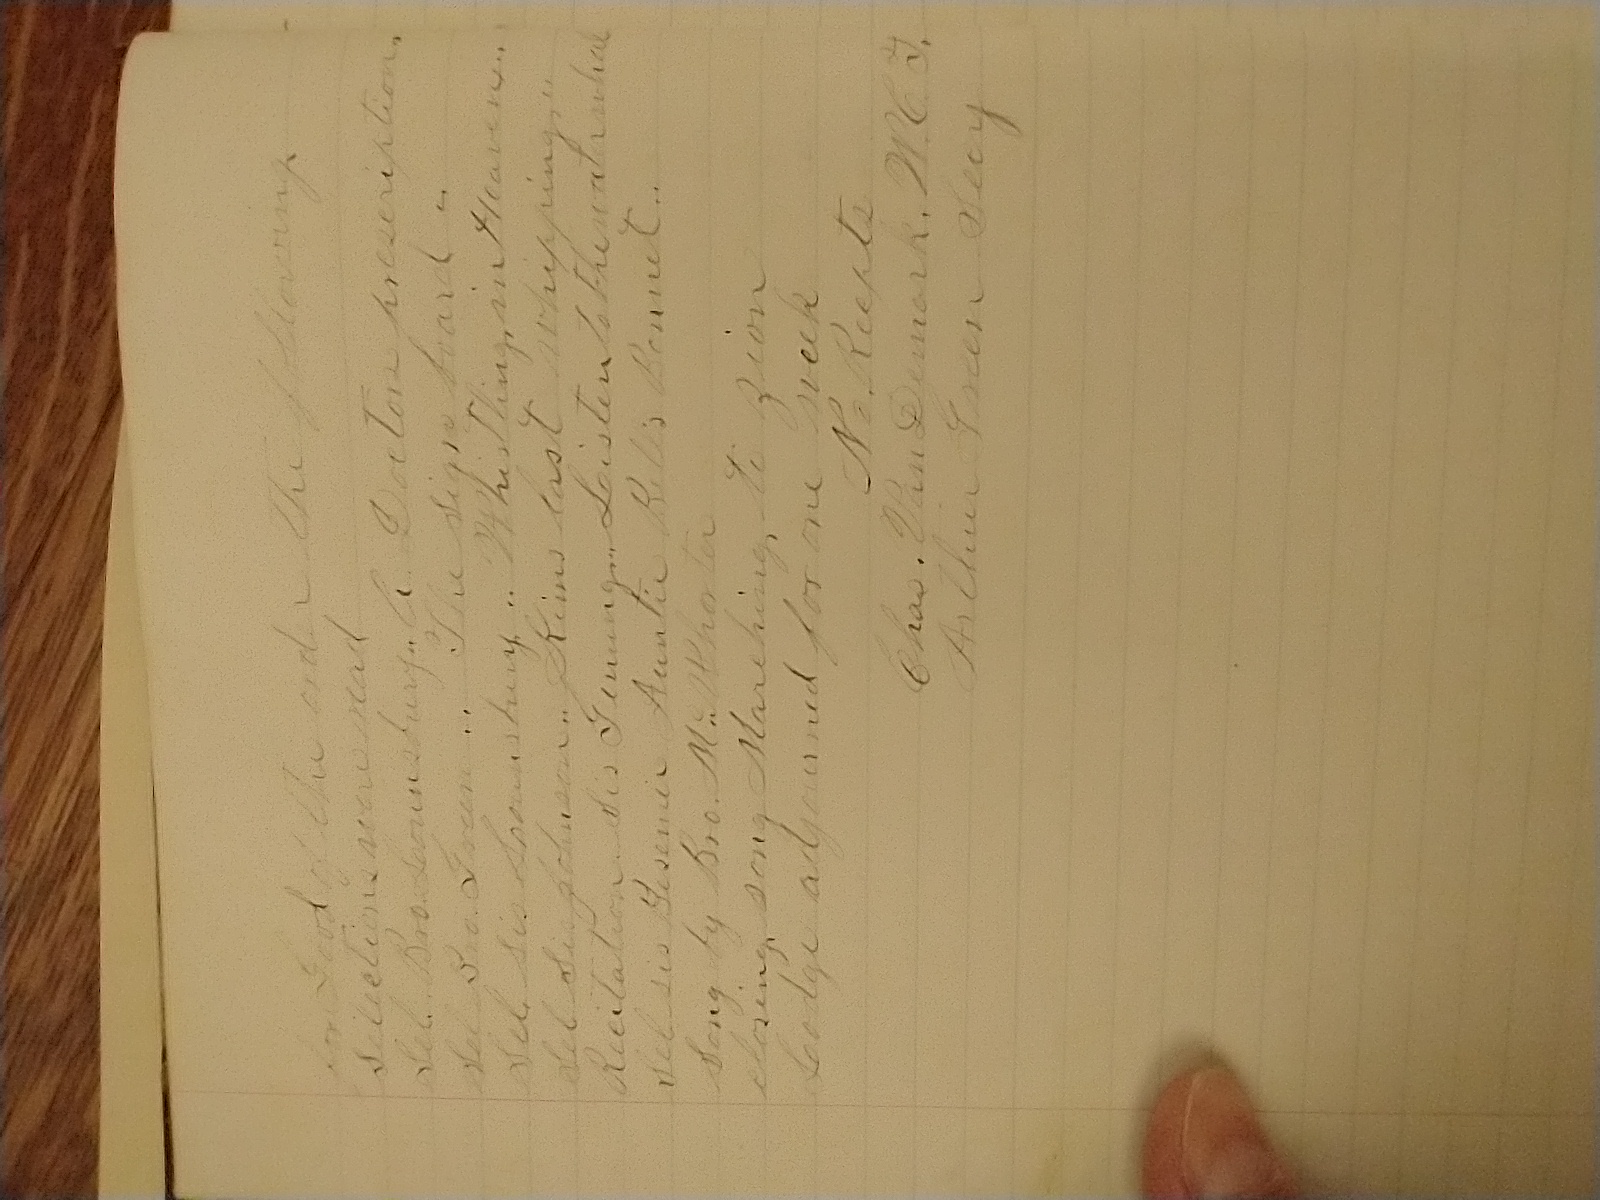 for Good of the order the following
Selections were read
Sel. Bro. Lounsbury.. A. Doctors prescription.
Sel Bro. Green .. The Sign board "
Sel. Sis Lounsbury .. Whistling in Heaven..
Sel Sis Johnson.. Kims last whipping"
Recitation. Sis Genung.. Listen to the water wheel
Sel sis Besemer Auntie Bell's Bonnet..
Song by Bro. Mc Whorter
closing song Marching to Zion
Lodge adjourned for one week
No. Recepts
Chas. Van Demark. W.C.T.
Arthur Green Secy